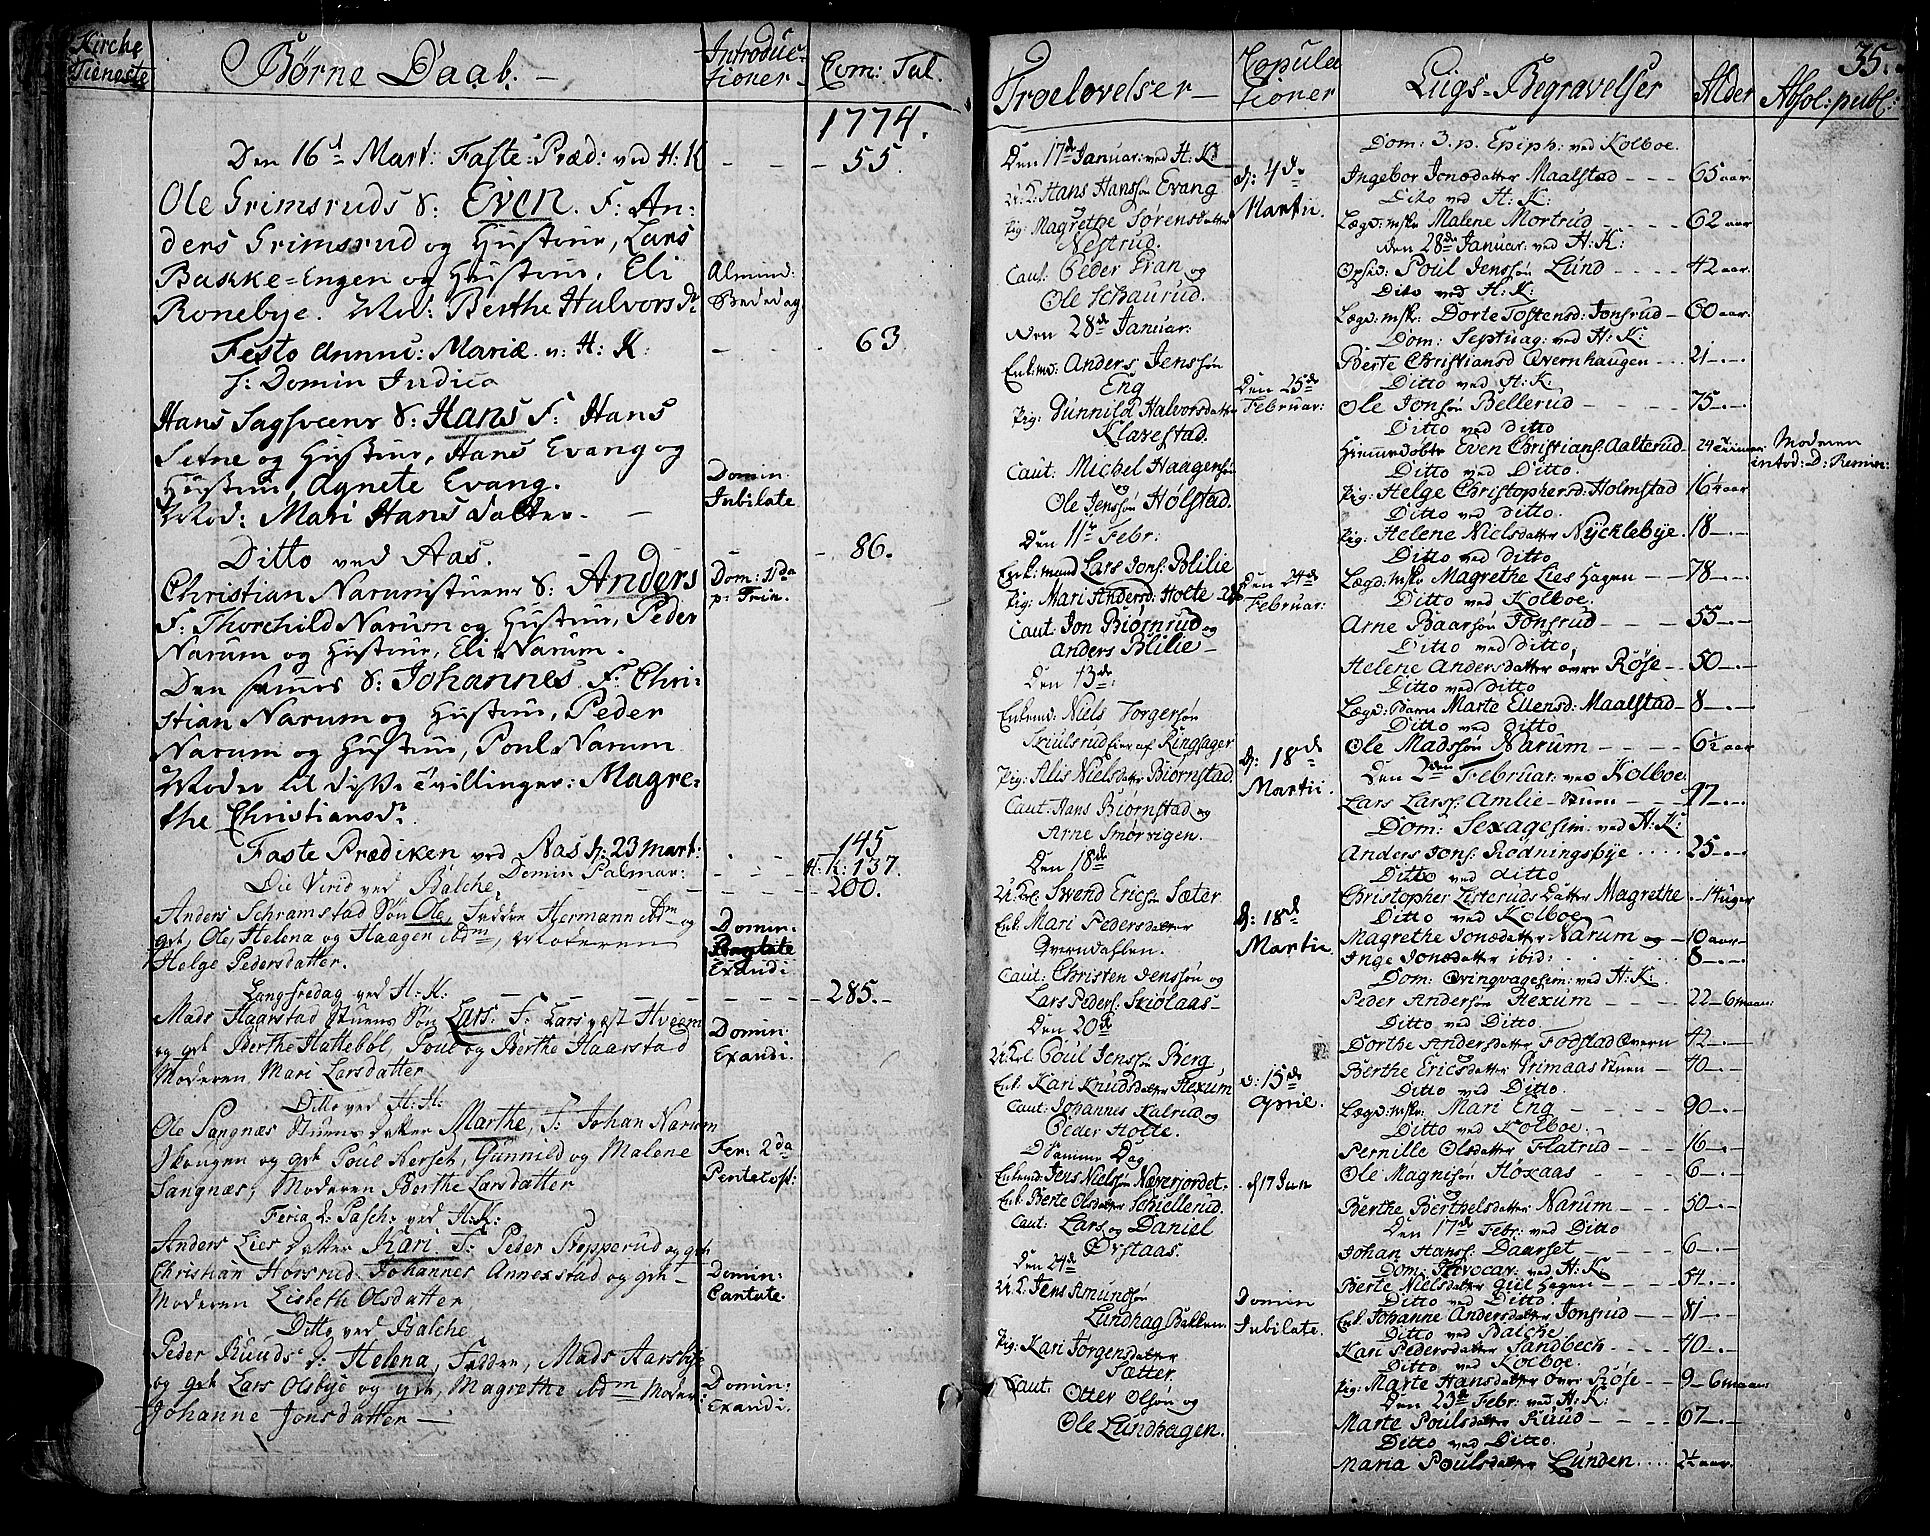 Kirche Tieneste
Børne Daab.
Introductioner
Com: Tal.
1774.
Den 16d Mart: Faste-Præd: ved H: K - - - 55.
Ole Grimsruds S: Even. F: An-
ders Grimsrud og Hustrue, Lars
Bakke-Engen og Hustrue, Eli
Ronebye. Mod: Berthe Halvorsdr
Almind: Bededag
Festo Annunc: Mariæ v: H: K: - - 63
f: Domin Judica
Hans Sagsveens S: Hans F: Hans
Setne og Hustrue, Hans Evang og
Hustrue, Agnete Evang.
Mod: Mari Hansdatter. -
Domin: Jubilate
Ditto ved Aas. - 86.
Christian Narumstuens S: Anders
F: Thorchild Narum og Hustrue, Peder
Narum og Hustrue, Eli Narum.
Dom: 11da p: Trin.
Den sammes S: Johannes F: Chri-
stian Narum og Hustrue, Peder
Narum og Hustrue, Poul Narum
Moder til disse tvillinger: Magre-
the Christiansdr.
Faste Prædiken ved Aas d: 23 Mart: - - 145
Domin Palmar: - - - H: K: 137.
Die Virid ved Balche - - - 200.
Anders Schramstad Søn Ole, Faddere Hermann ibdm og
gvt, Ole, Helena og Haagen ibdm, Moderen
Helge Pedersdatter.
Domin: Exaudi
Langfredag ved H: K: - - - 285.-
Mads Haarstad Stuens Søn Lars. F: Lars vest Hveem
og gvt Berthe Hattebøl, Poul og Berthe Haarstad
Moderen, Mari Larsdatter
Domin: Exaudi.
Ditto ved H: K:
Ole Sangnæs Stuens datter Marthe, F: Johan Narum
Skougen og gvt Poul Herset, Gunnild og Malene
Sangnæs, Moderen Berthe Larsdatter
Fer: 2da Pentecost:
Feria 2: Pasch: ved H: K:
Anders Lies datter Kari F: Peder Stepperud og gvt
Christian Horsrud Johannes Annexstad og gvt -
Moderen Lisbeth Olsdatter
Domin: Cantate.
Ditto ved Balche
Peder Ruuds d: Helena, Faddere, Mads Aarsbye
og gvt Lars Olsbye og gvt, Magrethe ibdm Moder:
Johanne Jonsdatter -
Domin: Exaudi.
Troelovelser -
Copulationer
Den 17de Januar: ved H: K:
U: K: Hans Hanssøn Evang
Pig: Magrethe Sørensdatter
Nestrud.
Caut: Peder Fran og
Ole Schaurud.
d: 4de Martii.
Den 28de Januar:
Enkemd: Anders Jenssøn
Eng
Pig: Gunnild Halvorsdatter
Klarestad.
Caut: Michel Haagenssøn
og
Ole Jenssøn Hølstad.
Den 25de Februar:
Den 11te Febr:
Enk: mand Lars Jons: Blilie
Pig: Mari Andersd: Holte
Caut: Jon Biørnrud og
Anders Blilie -
Den 24de Februar:
Den 13de:
Enkemd: Niels Torgersøn
Skiulsrud hier af Ringsager
Pig: Alis Nielsdatter Biørnstad
Caut: Hans Biørnstad og
Arne Smørvigen.
d: 18de Martii.
Den 18de
U: Kl: Swend Ericsøn Sæter
Enk: Mari Pedersdatter
Qverndahlen.
Caut: Christen Jenssøn og
Lars Peders: Skiolaas-
d: 18de Martii
Den 20de
U: Kl: Poul Jenssøn Berg
Enk: Kari Knudsdatter Hexum
Caut: Johannes Kalrud og
Peder Holte.
d: 15de April.
D: Samme Dag
Enkemd: Jens Nielsøn Næverjordet.
Enk: Berte Olsdatter Schiellerud.
Caut: Lars og Daniel
Ørstaas.
d 17 Jun
Den 24de
U: K: Jens Amundsøn
Lundhag Bakken.
Pig: Kari Jorgensdatter
Sætter.
Caut: Otter Olsøn og
Ole Lundhagen.
Domin Jubilate.
Liigs-Begravelser
Alder
Absol: publ:
35.
Dom: 3. p. Epiph: ved Kolboe.
Ingebor Jonsdatter Maalstad - - - 65 aar.
Dito ved H: K:
Lægd: mskr Malene Mortrud - - - 62 aar
den 28de Januar: ved H: K:
Opsid: Poul Jenssøn Lund - - - 42 aar.
Dito ved H: K:
Lægd: mskr Dorte Tostensd: Jonsrud - 60 aar.
Dom: Septuag: ved H: K:
Berte Christiansd Qvernhaugen - - - 21 -.-
Ditto ved H: K:
Ole Jonsøn Bellerud - - - 75 -.-
Ditto ved ditto
Hiemmedøbte Even Christians: Aalterud - 24 timer
Moderen introd: D: Remin:
Ditto ved Ditto.
Pig: Helge Christophersd: Holmstad 16½ aar
Ditto ved ditto.
Pig: Helene Nielsdatter Nycklebye. 18 -.-
Ditto ved ditto
Lægd: mskr Magrethe Lies Hagen - - 78 -.-
Ditto ved Kolboe.
Arne Baarsøn Jonsrud - - - 55 -.-
Ditto ved ditto,
Helene Andersdatter øvre Røse - - 50 -.-
Ditto ved ditto
Lægd: Barn Marte Ellensd: Maalstad - 8 -.-
Ditto ved ditto
Ole Madssøn Narum - - - 6½ aar
Den 2den Februar: ved Kolboe.
Lars Larss: Amlie-Stuen - - - 77 -.-
Dom: Sexagesim: ved H: K:
Anders Jons: Rødningsbye - - - 25 -.-
Ditto ved ditto
Christopher Listeruds Datter Magrethe - 14 uger
Ditto ved Kolboe
Magrethe Jonsdatter Narum og - 10 aar-
Inge Jonsdatter ibid: 8 -.-
Dom: Qvinqvagesim: ved H: K:
Peder Andersøn Hexum - - - 22 - 6 maan:
Ditto ved Ditto
Dorthe Andersdatter Fodstad Qvern - 42 -.-
Berthe Ericsdatter Grimaas Stuen - - 70 -.-
Ditto ved Ditto.
Lægd: mskr: Mari Eng - - - 90 -.-
Ditto ved Kolboe.
Pernille Olsdatter Flatrud - - - 16 -.-
Ole Magnisøn Hoxaas - - - 6 -.-
Berthe Berthelsdatter Narum - - - 50 -.-
Den 17de Febr: ved Ditto
Johan Hanss: Daarset - - - 6 -.-
Dom: Invocav: ved H: K
Berte Nielsdatter Giil Hagen - - - 54 -.-
Ditto ved Ditto.
Enk: Johanne Andersdatter Jonsrud - - 81 -.-
Ditto ved Balche
Kari Pedersdatter Sandbech - - - 70 -.-
Ditto ved Kolboe.
Pig: Marte Hansdatter øvre Røse - - 9 - 6 maan:
Den 23de Febr: ved H: K:
Marte Poulsdatter Ruud - - - 67 -.-
Ditto ved Ditto.
Maria Poulsdatter Lunden.... 2½ aar.